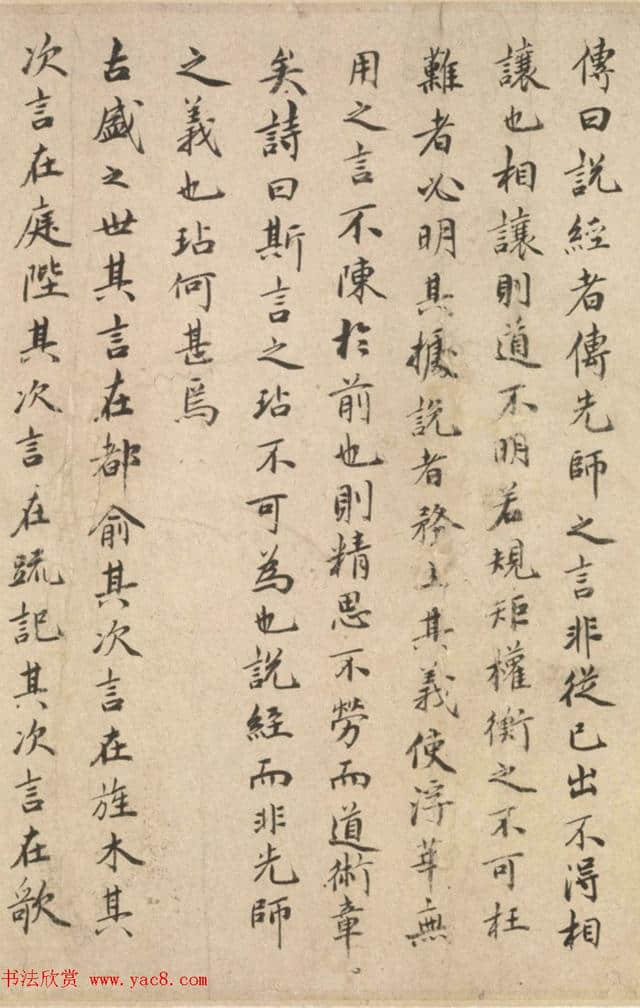 傳曰說經者傳先師之言非從己出不得相
讓也相讓則道不明若規矩權衡之不可枉
難者必明其據說者務立其義使浮華無
用之言不陳於前也則精思不勞而道術章
矣詩曰斯言之玷不可為也說經而非先師
之義也玷何甚焉
古盛之世其言在都俞其次言在旌木其
次言在庭陛其次言在疏記其次言在歌
书法欣赏 www.yac8.com